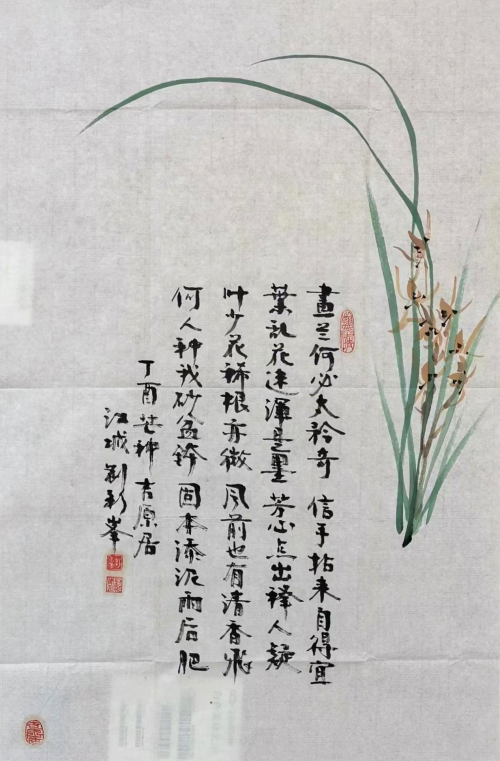 畫兰何必太矜奇 信手拈来自得宜
葉乱花迷渾是墨 芳心点出释人疑
叶少花稀根亦微 风前也有清香飛
何人种我砂盆钵 固本添泥雨后肥
丁酉芒种 吉原居
江城 劉彩峯